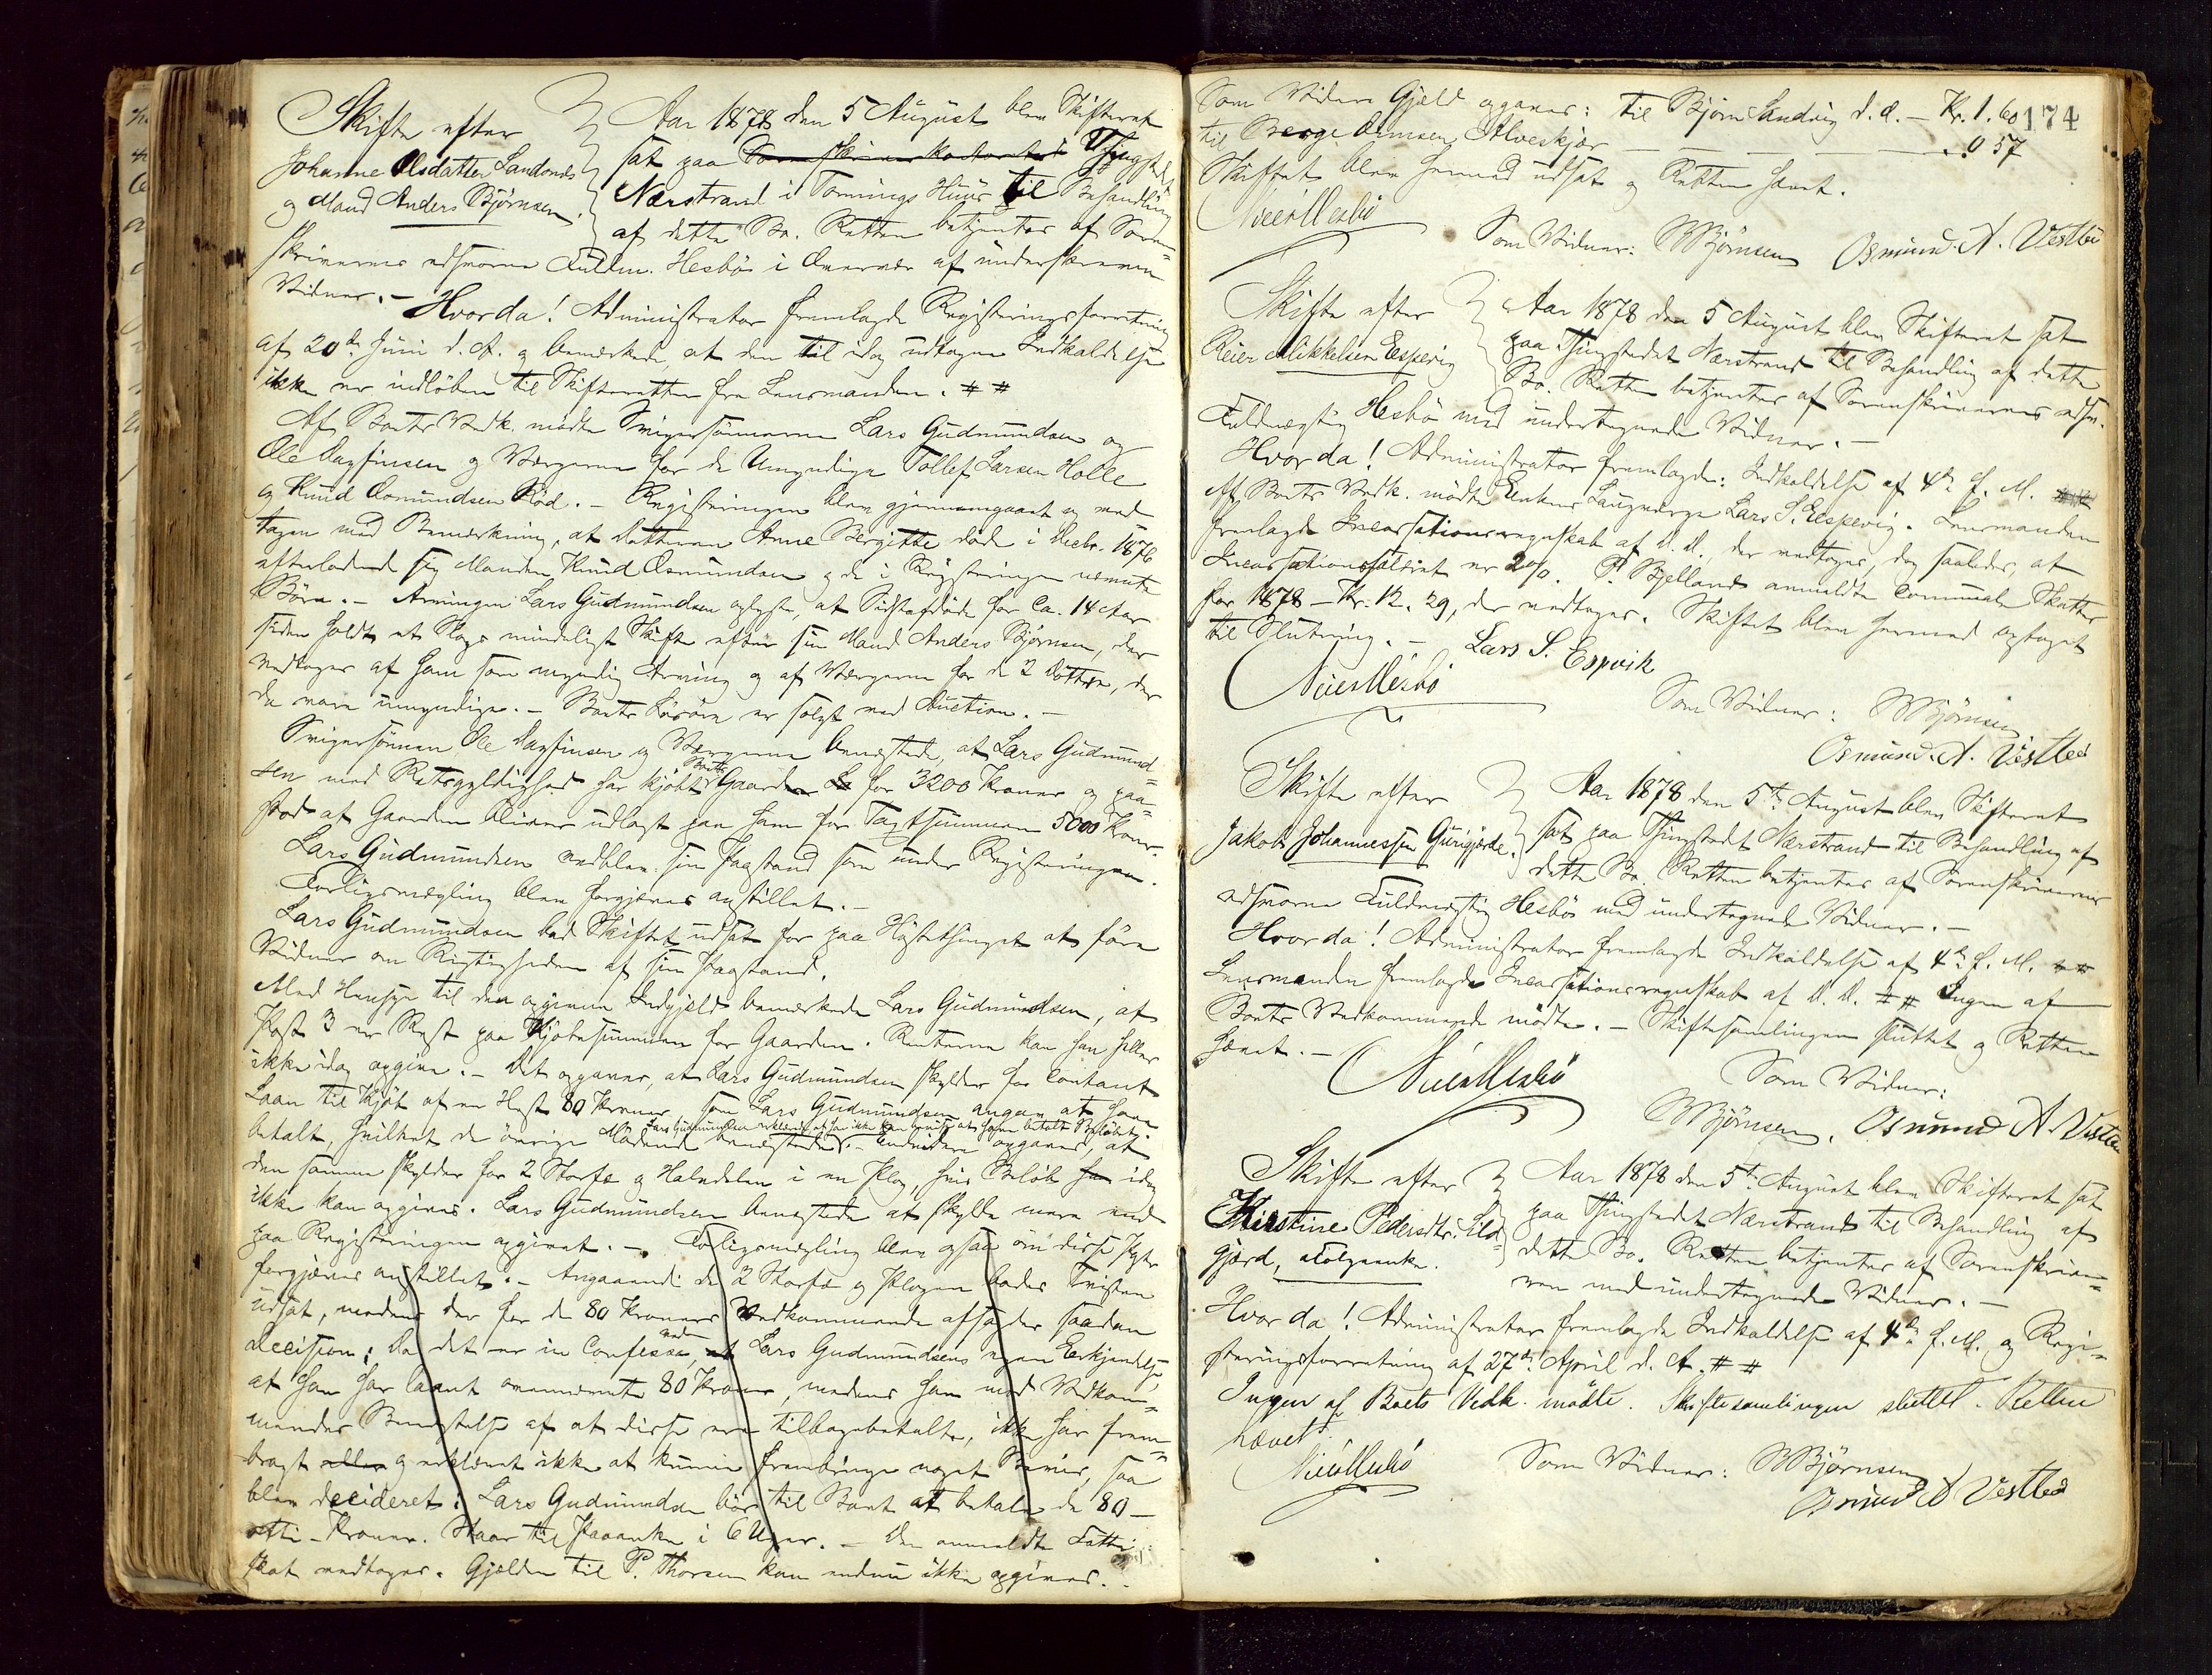 Skifte efter
Johanne Olsdatter Sandanes
og Mand Anders Björnsen.
Aar 1878 den 5 August blev Skifteret
sat paa Sorenskriverkontoret Thingstedet
Nærstrand i Tornings Huus til Behandling
af dette Bo. Retten betjentes af Soren-
skriverens edsvorne Fuldm. Hesbö i Overvær af underskrevne
Vidner. – Hvorda! Administrator fremlagde Registreringsforretning
af 20de Juni d. A. og bemærkede, at den til idag udtagne Indkaldelse
ikke er indlöben til Skifteretten fra Lensmanden. # #
Af Boets Vedk. mödte Svigersönnerne Lars Gudmundsen og
Ole Dagfinsen og Værgerne for de Umyndige Tollef Larsen Holle
og Knud Osmundsen Röd. – Registreringen blev gjennemgaaet og ved
tagen med Bemærkning, at Datteren Anne Bergitte döde i Decbr. 1876
efterladende sig Manden Knud Osmundsen og de i Registreringen nævnte
Börn. – Arvingen Lars Gudmundsen oplyste, at Sidstafdöde for ca. 14 Aar
siden holdt et Slags mindeligt Skifte efter sin Mand Anders Björnsen, der
vedtoges af ham som myndig Arving og af Værgerne for de 2 Döttre, der
da vare umyndige. – Boets Lösöre er solgt ved Auction. –
Svigersönnen Ole Dagfinsen og Værgerne benegtede, at Lars Gudmund-
sen med Retsgyldighed har kjöbt Boets Gaard for 3200 Kroner og paa-
stod at Gaarden bliver udlagt paa ham for Taxtsummen 5000 Kroner.
Lars Gudmundsen vedblev sin Paastand som under Registreringen.
Forligsmægling blev forgjæves anstillet. –
Lars Gudmundsen bad Skiftet udsat for paa Höstthinget at före
Vidner om Rigtigheden af sin Paastand.
Med Hensyn til den opgivne Indgjæld bemærkede Lars Gudmundsen, at
Post 3 er Rest paa Kjöbesummen for Gaarden. Renterne kan han heller
ikke idag opgive. – Det opgaves, at Lars Gudmundsen skylder for contant
Laan til Kjöb af en Hest 80 Kroner, som Lars Gudmundsen angav at have
Lars Gudmundsen erklærede at han ikke kan bevise at have betalt Belöbet.
betalt, hvilket de övrige Mödende benegtede. – Endvidere opgaves, at
den samme skylder for 2 Storfæ og Halvdelen i en Plog, hvis Belöb idag
ikke kan opgives. Lars Gudmundsen benegtede at skylde mere end
paa Registreringen opgivet. – Forligsmægling blev ogsaa om disse Poster
forgjæves anstillet. – Angaaende de 2 Storfæ og Plogen bades Tvisten
udsat, medens der for de 80 Kroners Vedkommende afsagdes saadan
Decision: Da det er in Confesso, ved Lars Gudmundsens egen Erkjendelse,
at han har laant ovennævnte 80 Kroner, medens han mod Vedkom-
mendes Benegtelse af at disse ere tilbagebetalte, ikke har frem-
bragt eller og erklæret ikke at kunne frembringe noget Bevis, saa
blev decideret: Lars Gudmundsen bör til Boet at betale de 80 –
otti – Kroner. Staar til Paaanke i 6 Uger. – Den anmeldte Fatti-
skat vedtoges. Gjælden til P. Thorsen kan endnu ikke opgives. –
174
Som videre Gjæld opgaves: til Björn Sandvig d. æ. – Kr. 1.60
til Berge Aimsen Alveskjær – – – – 0 57
Skiftet blev hermed udsat og Retten hævet.
Som Vidner: Björnsen Osmund. A. Vestbö
Skifte efter
Reier Mikkelsen Espevig
Aar 1878 den 5 August blev Skifteret sat
paa Thingstedet Nærstrand til Behandling af dette
Bo. Retten betjentes af Sorenskriverens edsv.
Fuldmægtig Hesbö med undertegnede Vidner. –
Hvorda! Administrator fremlagde: Indkaldelse af 4de f. M.
Af Boets Vedk. mödte Enkens Laugværge Lars S. Espevig. Lensmanden
fremlagde Incassationsregnskab af D. D., der vedtoges, dog saaledes, at
Incassationssalairet er 2%. P. Bjelland anmeldte Communale Skatter
for 1878 – Kr. 12.29, der vedtoges. Skiftet blev hermed optaget
til Slutning. – Lars S. Espvik
Som Vidner: Björnsen
Osmund. A. Vestbö
Skifte efter
Jakob Johannessen Gurigjerde.
Aar 1878 den 5te August blev Skifteret
sat paa Thingstedet Nærstrand til Behandling af
dette Bo. Retten betjentes af Sorenskriverens
edsvorne Fuldmægtig Hesbö med undertegnede Vidner. –
Hvorda! Administrator fremlagde Indkaldelse af 4de f. M. # #
Lensmanden fremlagde Incassationsregnskab af D. D. # # Ingen af
Boets Vedkommende mödte. – Skiftesamlingen sluttet og Retten
hævet. –
Som Vidner:
Björnsen. Osmund A. Vestbö
Skifte efter
Kirstine Pedersdtr. Lid-
gjerd,
Aar 1878 den 5te August blev Skifteret sat
paa Thingstedet Nærstrand til Behandling af
dette Bo. Retten betjentes af Sorenskrive-
ren med undertegnede Vidner. –
Hvorda! Administrator fremlagde Indkaldelse af 4de f. M. og Regi-
streringsforretning af 27de April d. A. # #
Ingen af Boets Vedk. mödte. Skiftesamlingen sluttet. Retten
hævet.
Som Vidner: Björnsen
Osmund A Vestbö